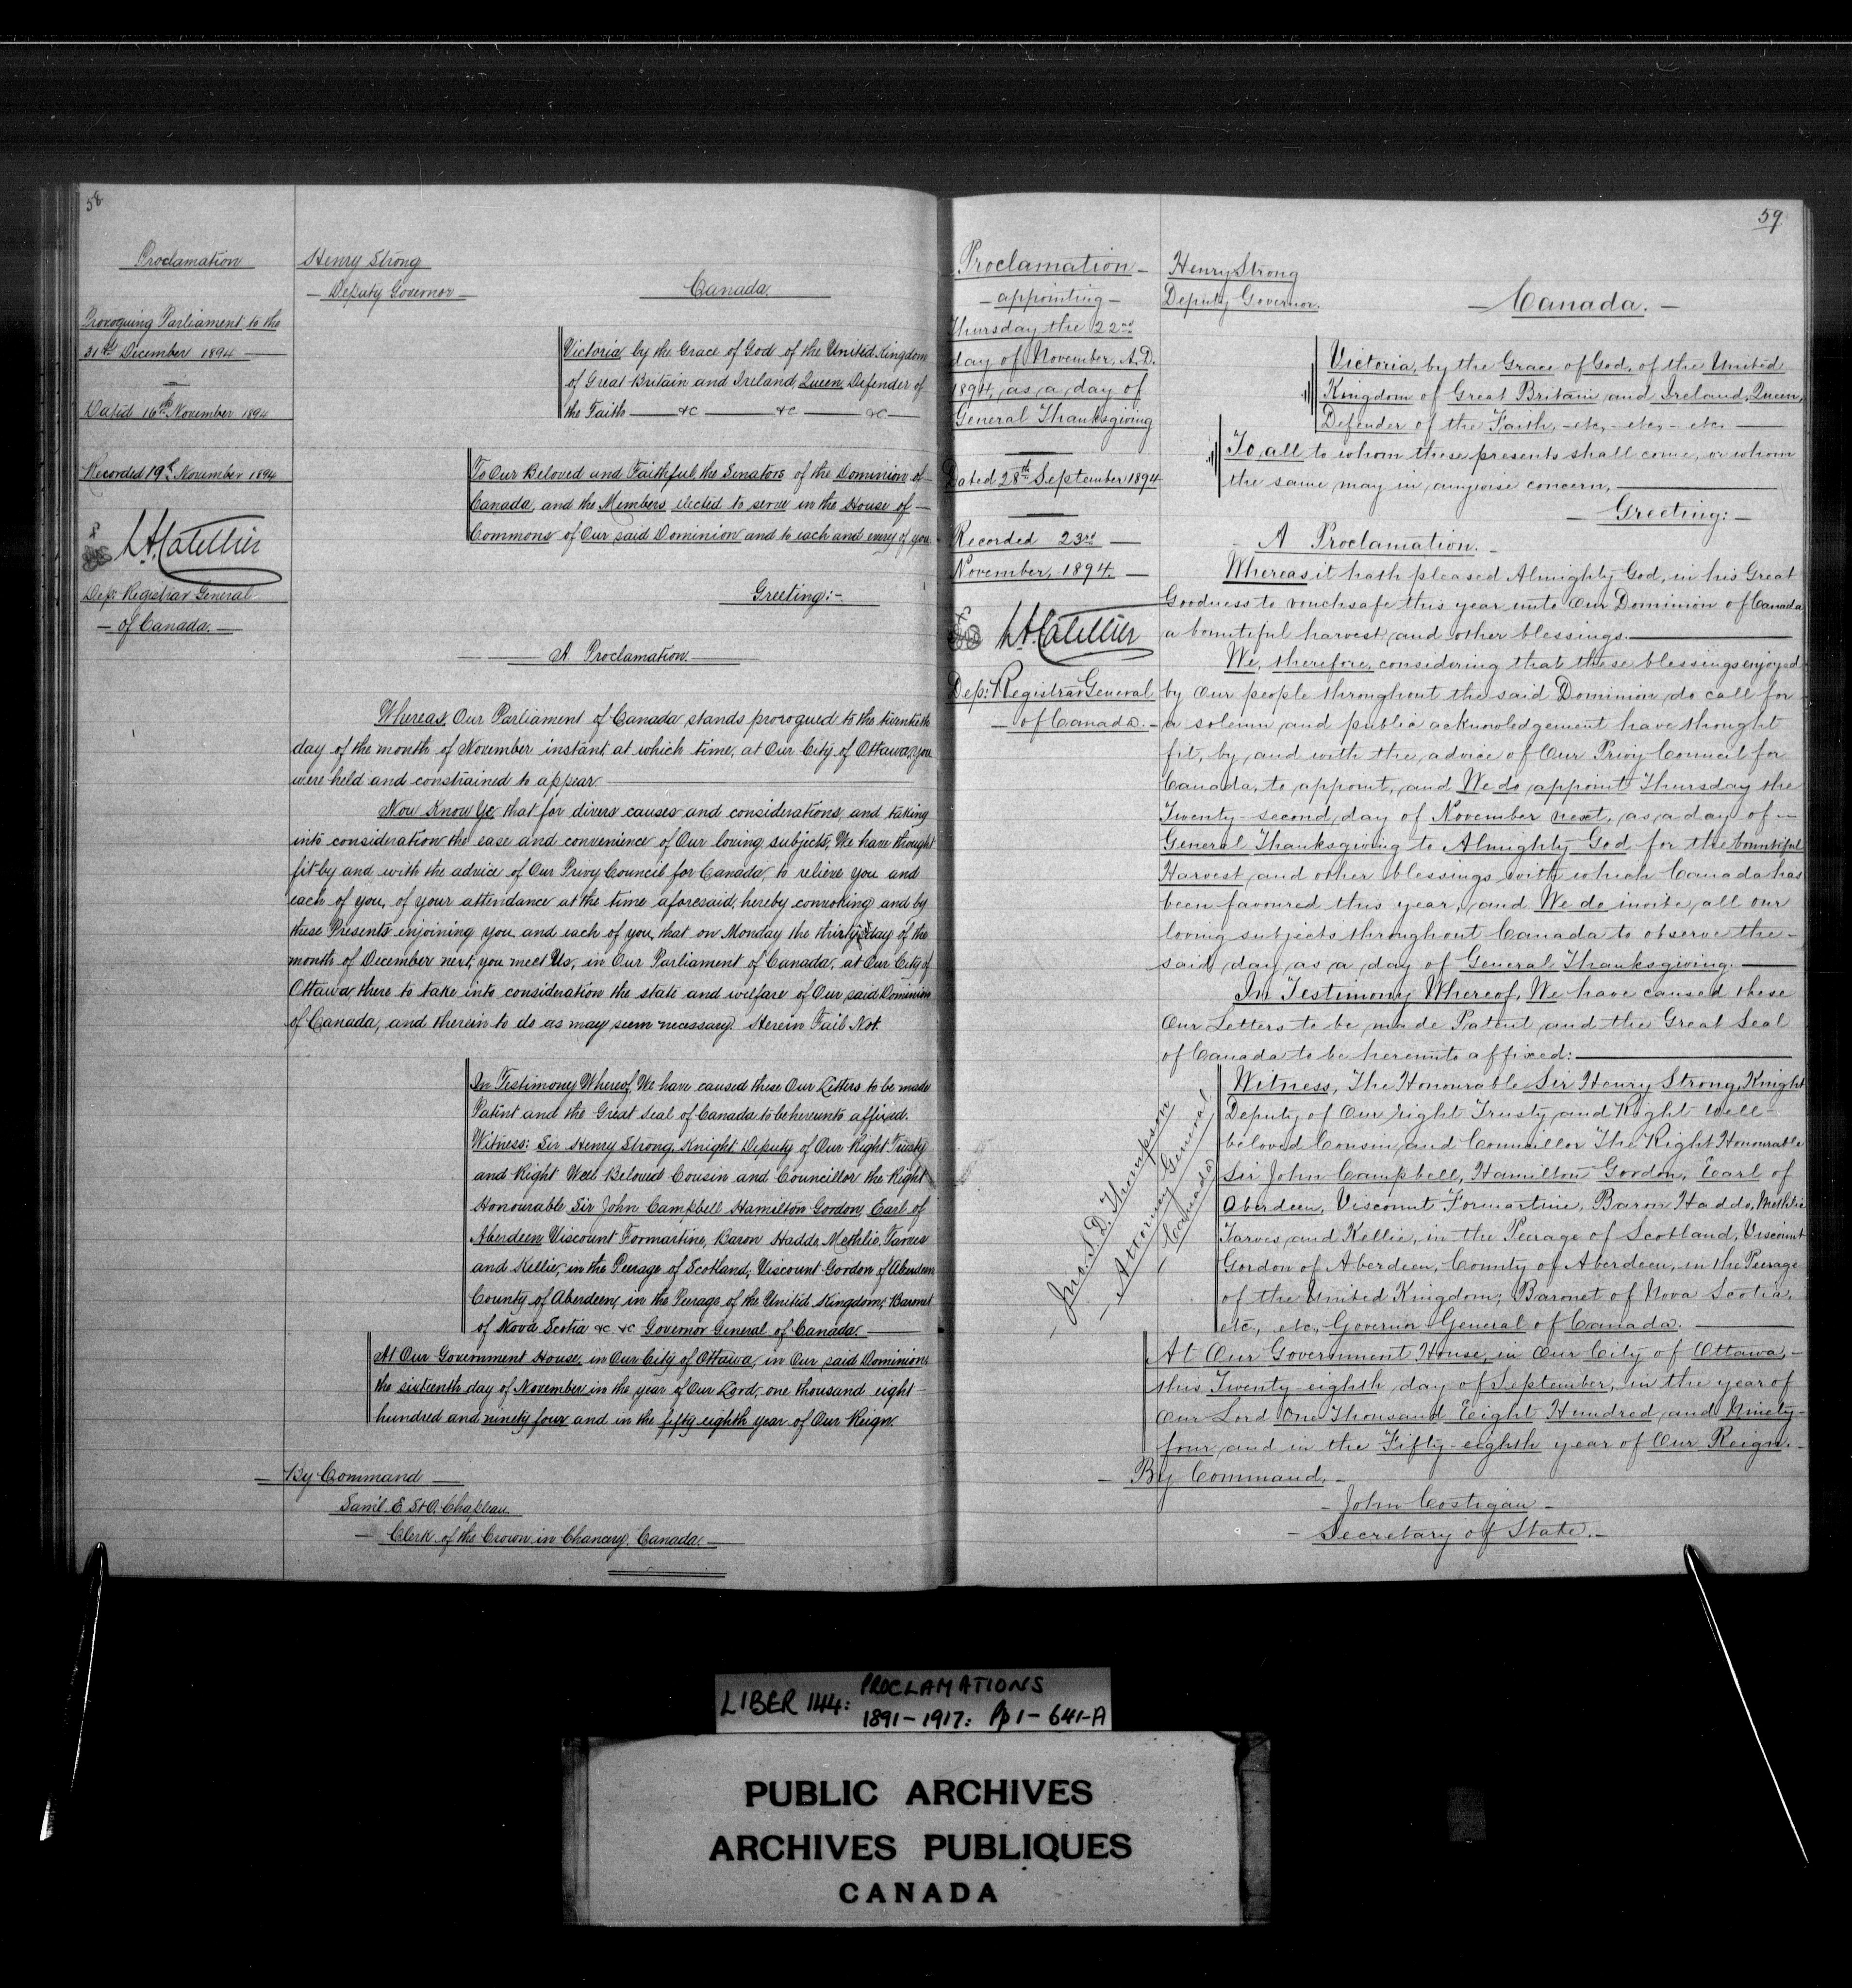 58
Proclamation
Proroguing Parliament to the
31st December 1894
Dated 16th November 1894
Recorded 19th November 1894
L.A. Catellier
Dep: Registrar General
of Canada.
Henry Strong
Deputy Governor
Canada.
Victoria by the Grace of God of the United Kingdom
of Great Britain and Ireland, Queen, Defender of
the Faith &c &c &c
To Our Beloved and Faithful, the Senators of the Dominion of
Canada, and the Members elected to serve in the House of
Commons of Our said Dominion and to each and every of you
Greeting:-
A Proclamation.
Whereas, Our Parliament of Canada stands prorogued to the twentieth
day of the month of November instant, at which time, at Our City of Ottawa, you
were held and constrained to appear.
Now Know Ye, that for divers causes and considerations, and taking
into consideration the ease and convenience of Our loving subjects, We have thought
fit by and with the advice of Our Privy Council for Canada, to relieve you and
each of you, of your attendance at the time aforesaid, hereby convoking and by
these Presents enjoining you and each of you, that on Monday the thirty day of the
month of December next, you meet Us, in Our Parliament of Canada, at Our City of
Ottawa there to take into consideration the state and welfare of Our said Dominion
of Canada, and therein to do as may seem necessary. Herein Fail Not.
In Testimony Whereof, We have caused these Our Letters to be made
Patent and the Great Seal of Canada to be hereunto affixed.
Witness: Sir Henry Strong, Knight, Deputy of Our Right Trusty
and Right Well Beloved Cousin and Councillor the Right
Honourable Sir John Campbell Hamilton Gordon, Earl of
Aberdeen Viscount Formartine, Baron Haddo, Methlic, Tarves
and Kellie, in the Peerage of Scotland; Viscount Gordon of Aberdeen
County of Aberdeen, in the Peerage of the United Kingdom; Baronet
of Nova Scotia &c &c Governor General of Canada.
At Our Government House, in Our City of Ottawa, in Our said Dominion,
the sixteenth day of November in the year of Our Lord, one thousand eight
hundred and ninety four and in the fifty eighth year of Our Reign.
By Command
Sam'l E. St O. Chapleau
Clerk of the Crown in Chancery, Canada.
59
Proclamation
appointing
Thursday the 22nd
day of November, A.D.
1894, as a day of
General Thanksgiving
Dated 28th September 1894
Recorded 23rd
November, 1894.
L.A. Catellier
Dep: Registrar General
of Canada.
Jno. S. D. Thompson
Attorney General
Canada
Henry Strong
Deputy Governor.
Canada.
Victoria, by the Grace of God, of the United
Kingdom of Great Britain and Ireland, Queen,
Defender of the Faith, etc, etc, etc.
To all to whom these presents shall come, or whom
the same may in anywise concern,
Greeting:-
A Proclamation.
Whereas it hath pleased Almighty God, in his Great
Goodness to vouchsafe this year unto Our Dominion of Canada
a bountiful harvest and other blessings.
We, therefore, considering that these blessings enjoyed
by Our people throughout the said Dominion do call for
a solemn and public acknowledgement have thought
fit, by and with the advice of Our Privy Council for
Canada, to appoint, and We do appoint Thursday the
Twenty-second day of November next, as a day of
General Thanksgiving to Almighty God for the bountiful
Harvest and other blessings with which Canada has
been favoured this year, and We do invite all our
loving subjects throughout Canada to observe the
said day as a day of General Thanksgiving.
In Testimony Whereof, We have caused these
Our Letters to be made Patent and the Great Seal
of Canada to be hereunto affixed:
Witness, The Honourable Sir Henry Strong, Knight
Deputy of Our right Trusty and Right Well-
beloved Cousin and Councillor The Right Honourable
Sir John Campbell, Hamilton Gordon, Earl of
Aberdeen, Viscount Formartine, Baron Haddo, Methlic
Tarves and Kellie, in the Peerage of Scotland, Viscount
Gordon of Aberdeen, County of Aberdeen, in the Peerage
of the United Kingdom; Baronet of Nova Scotia,
etc, etc, Governor General of Canada.
At Our Government House, in Our City of Ottawa,
this Twenty-eighth day of September, in the year of
Our Lord One Thousand Eight Hundred and Ninety-
four, and in the Fifty-eighth year of Our Reign.
By Command,
John Costigan
Secretary of State.
LIBER 144: PROCLAMATIONS
1891-1917: Pp 1-641-A
PUBLIC ARCHIVES
ARCHIVES PUBLIQUES
CANADA